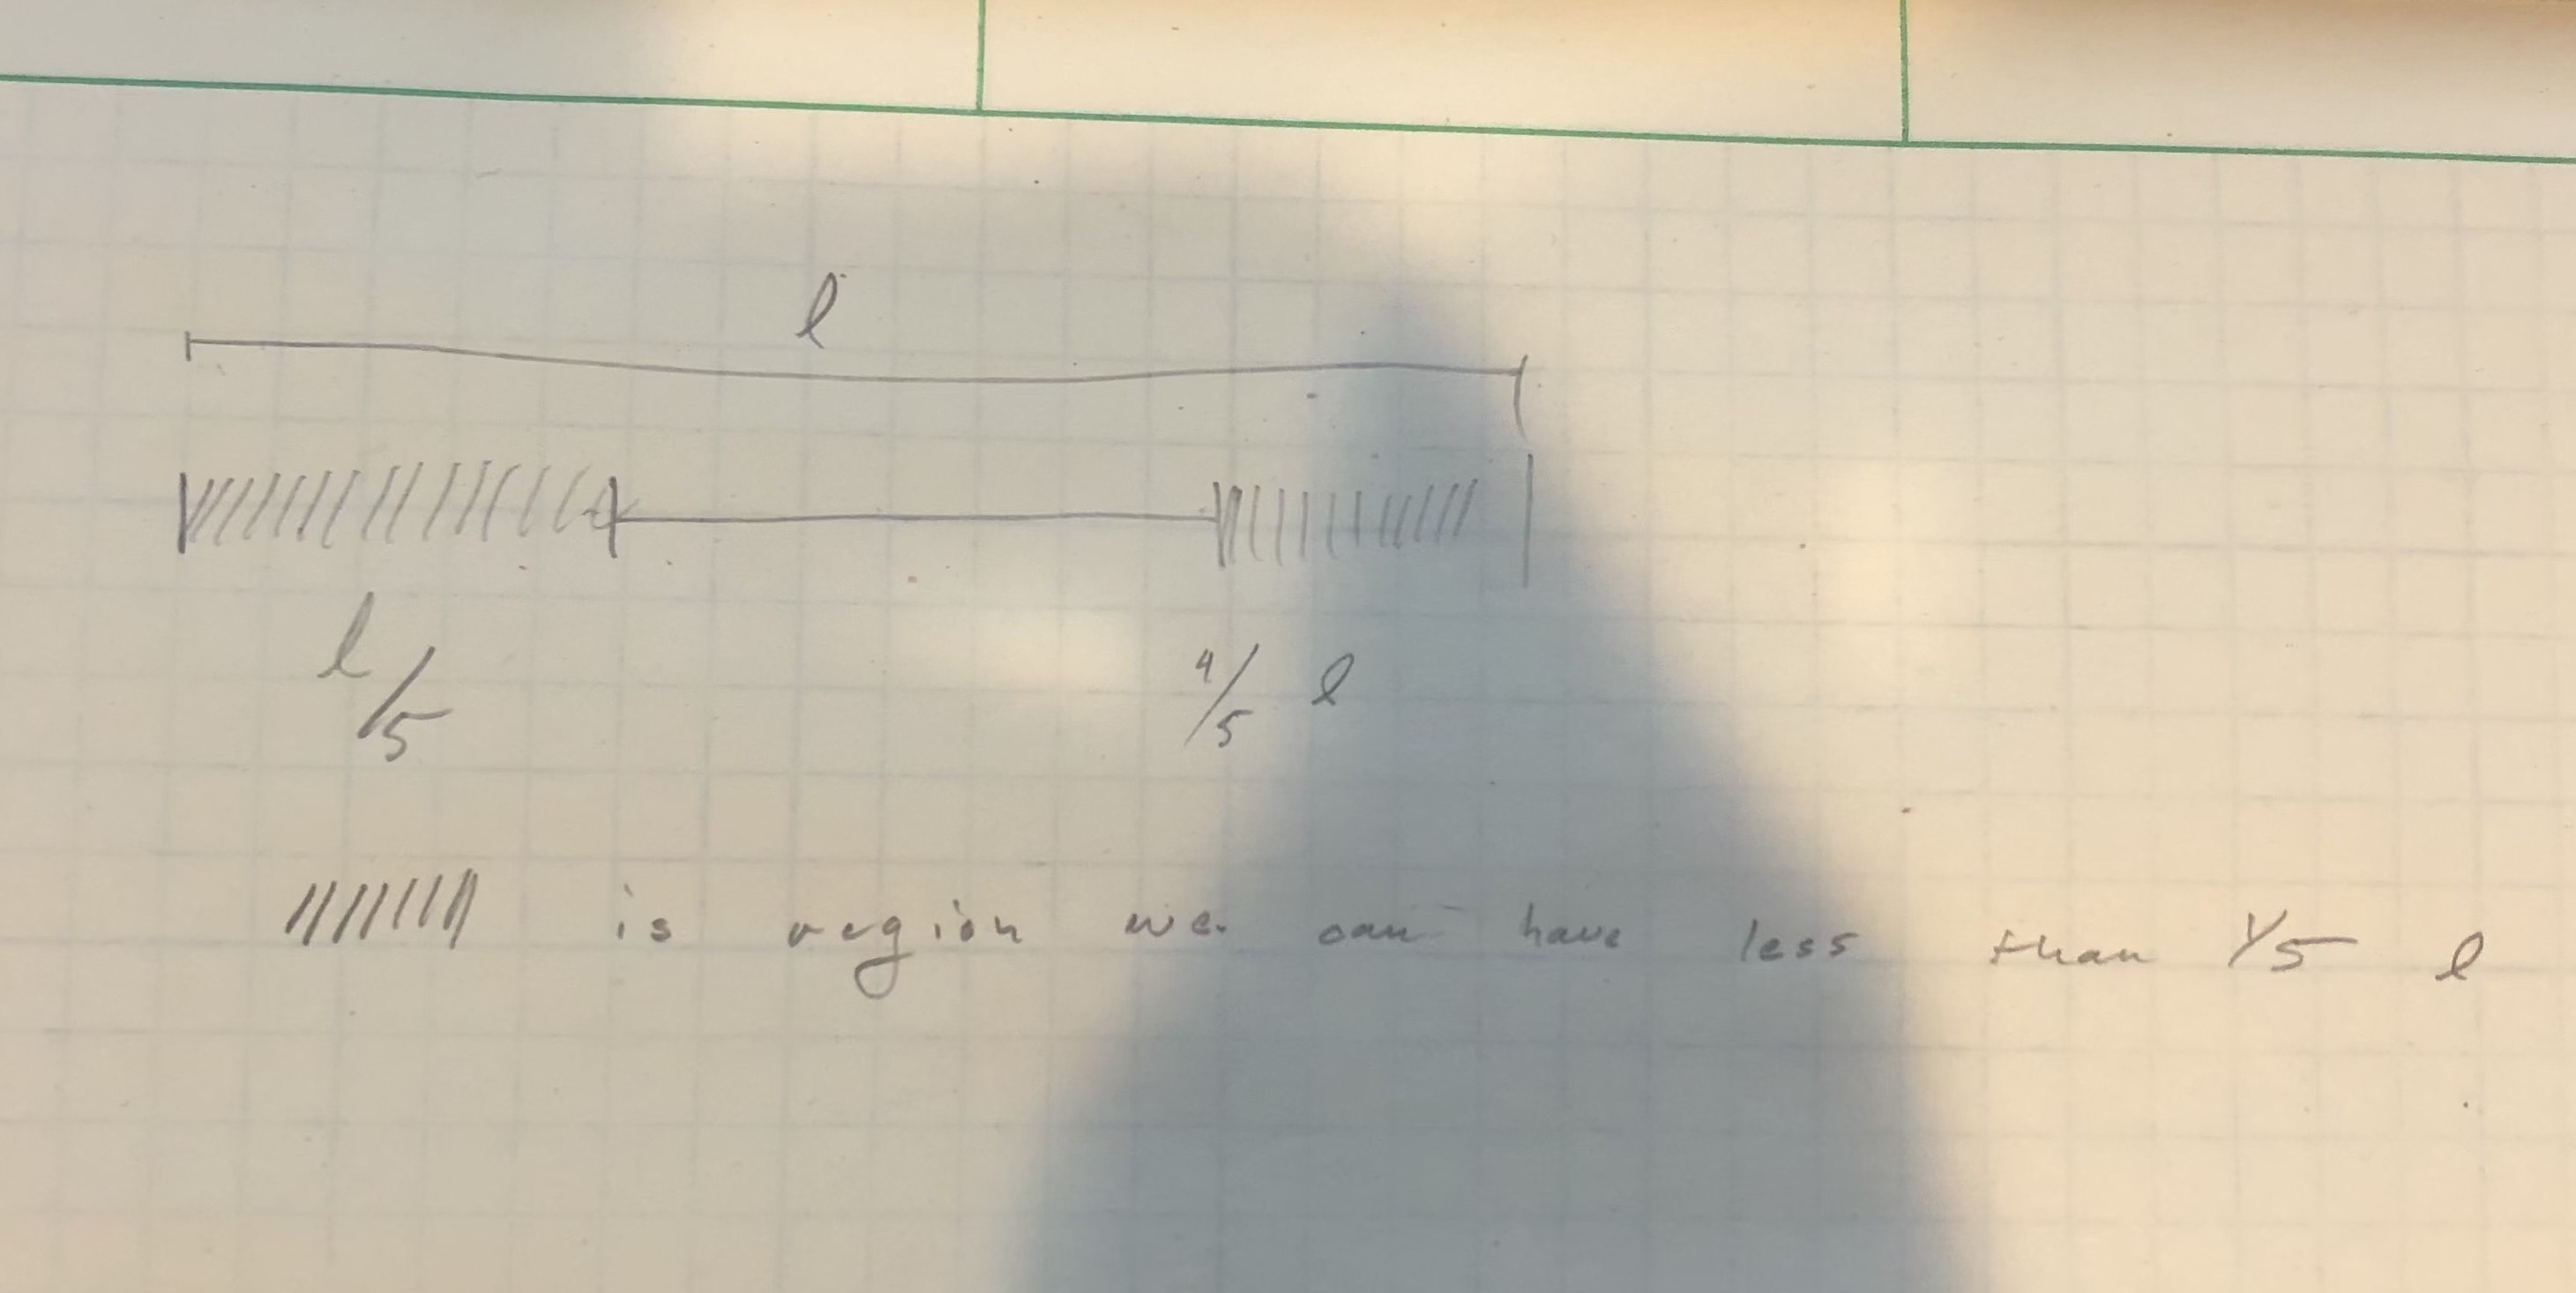 l
l/5
4/5 l
is region we can have less than 1/5 l